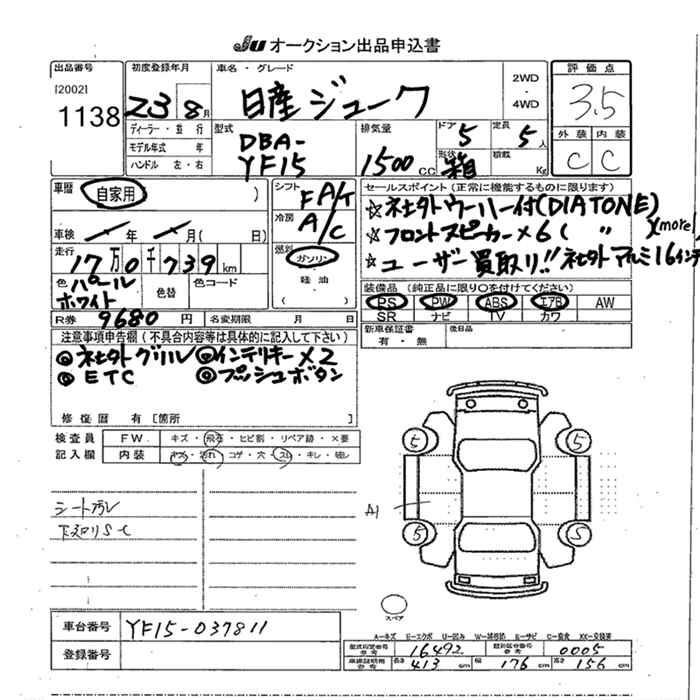 JU オークション出品申込書
出品番号
[2002]
1138
初度登録年月
23 8月
ディーラー・並 行
モデル年式 年
ハンドル 左・右
車名・グレード
日産 ジューク
2WD
・
4WD
評価点
3.5
外装 内装
C C
型式
DBA-
YF15
排気量
1500 CC
ドア 5
定員 5人
形状 箱
積載 Kg
車歴
自家用 )
車検 年 月( 日)
走行
17万0千739km
色 パール
ホワイト
色替
色コード
シフト FA/T
冷房 A/C
燃料
ガソリン
軽油
R券 9680 円
名変期限 月 日
セールスポイント(正常に機能するものに限ります)
☆社外ウーハー付(DIATONE)
☆フロントスピーカー×6( 〃 )
☆ユーザー買取り!!社外アルミ16インチ
Xmore
装備品 (純正品に限り○を付けてください)
PS PW ABS エアB AW
SR ナビ TV カワ
新車保証書
有・無
後日品
注意事項申告欄(不具合内容等は具体的に記入して下さい)
◎社外グリル ◎インテリキー×2
◎ETC ◎プッシュボタン
修復歴 有[箇所 ]
検査員
記入欄
FW キズ・飛石・ヒビ割・リペア跡・×要
内装 キズ・汚れ・コゲ・穴・スレ・キレ・破レ
シート汚レ
下廻りS-C
5 5
A1
5 5
スペア
車台番号 YF15-037811
登録番号
A-キズ E-エクボ U-凹み W-補修跡 S-サビ C-腐食 XX-交換済
型式指定番号
参考
16492
類別区分番号
参考
0005
車検証明用
参考
長さ 413 cm 幅 176 cm 高さ 156 cm